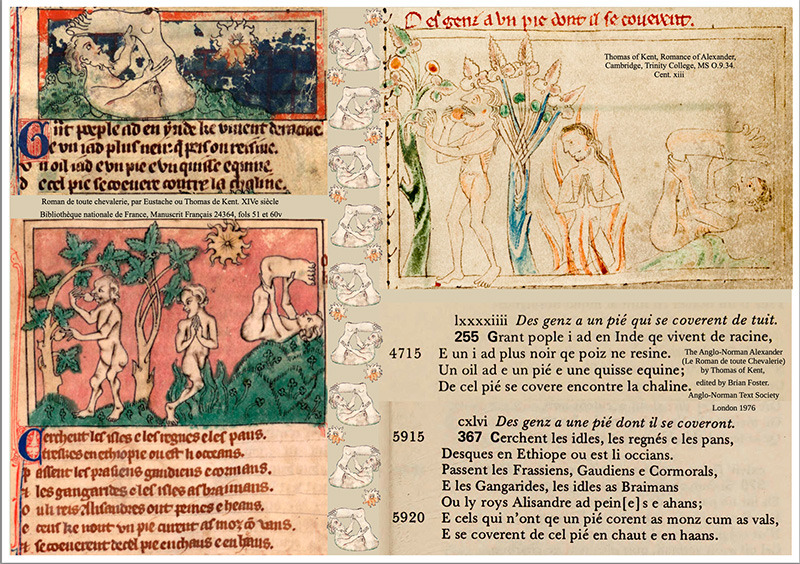 Gñt peeple ad en ynde ke viuent deracine.
e vn iad plus neir q̃ peis ou reisine.
vn oil iad e vn pie e vn quisse equine.
de cel pie se coeuere contre la chaline.
Roman de toute chevalerie, par Eustache ou Thomas de Kent. XIVe siècle
Bibliothèque nationale de France, Manuscrit Français 24364, fols 51 et 60v
Cerchent les isles e les regnes e les pans.
en ethiopie ou est li occeans.
passent les pasiens gandiens e cormans.
e les gangarides e les isles as braimans.
ou li reis alisandres out peines e heans.
e ceus ke nout vn pie curent as mõz cõ vans.
e se coeuerent de cel pie en chaus e en hans.
Des genz a vn pie dont il se coverent.
Thomas of Kent, Romance of Alexander,
Cambridge, Trinity College, MS O.9.34.
Cent. xiii
lxxxxiiii Des genz a un pié qui se coverent de tuit.
255 Grant pople i ad en Inde qe vivent de racine,
4715 E un i ad plus noir qe poiz ne resine.
Un oil ad e un pié e une quisse equine;
De cel pié se covere encontre la chaline.
The Anglo-Norman Alexander
(Le Roman de toute Chevalerie)
by Thomas of Kent,
edited by Brian Foster.
Anglo-Norman Text Society
London 1976
cxlvi Des genz a une pié dont il se coveront.
5915 367 Cerchent les idles, les regnés e les pans,
Desques en Ethiope ou est li occians.
Passent les Frassiens, Gaudiens e Cormorals,
E les Gangarides, les idles as Braimans
Ou ly roys Alisandre ad pein[e] s e ahans;
5920 E cels qi n'ont qe un pié corent as monz cum as vals,
E se coverent de cel pié en chaut e en haans.